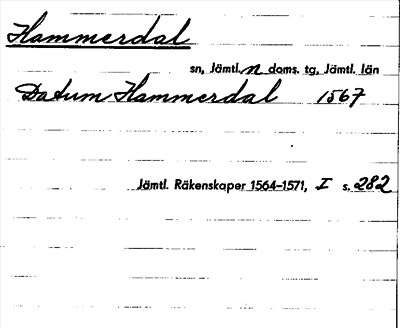 Hammerdal
sn, Jämtl. n doms. tg, Jämtl. län
Datum Hammerdal 1567
Jämtl. Räkenskaper 1564-1571, I s. 282